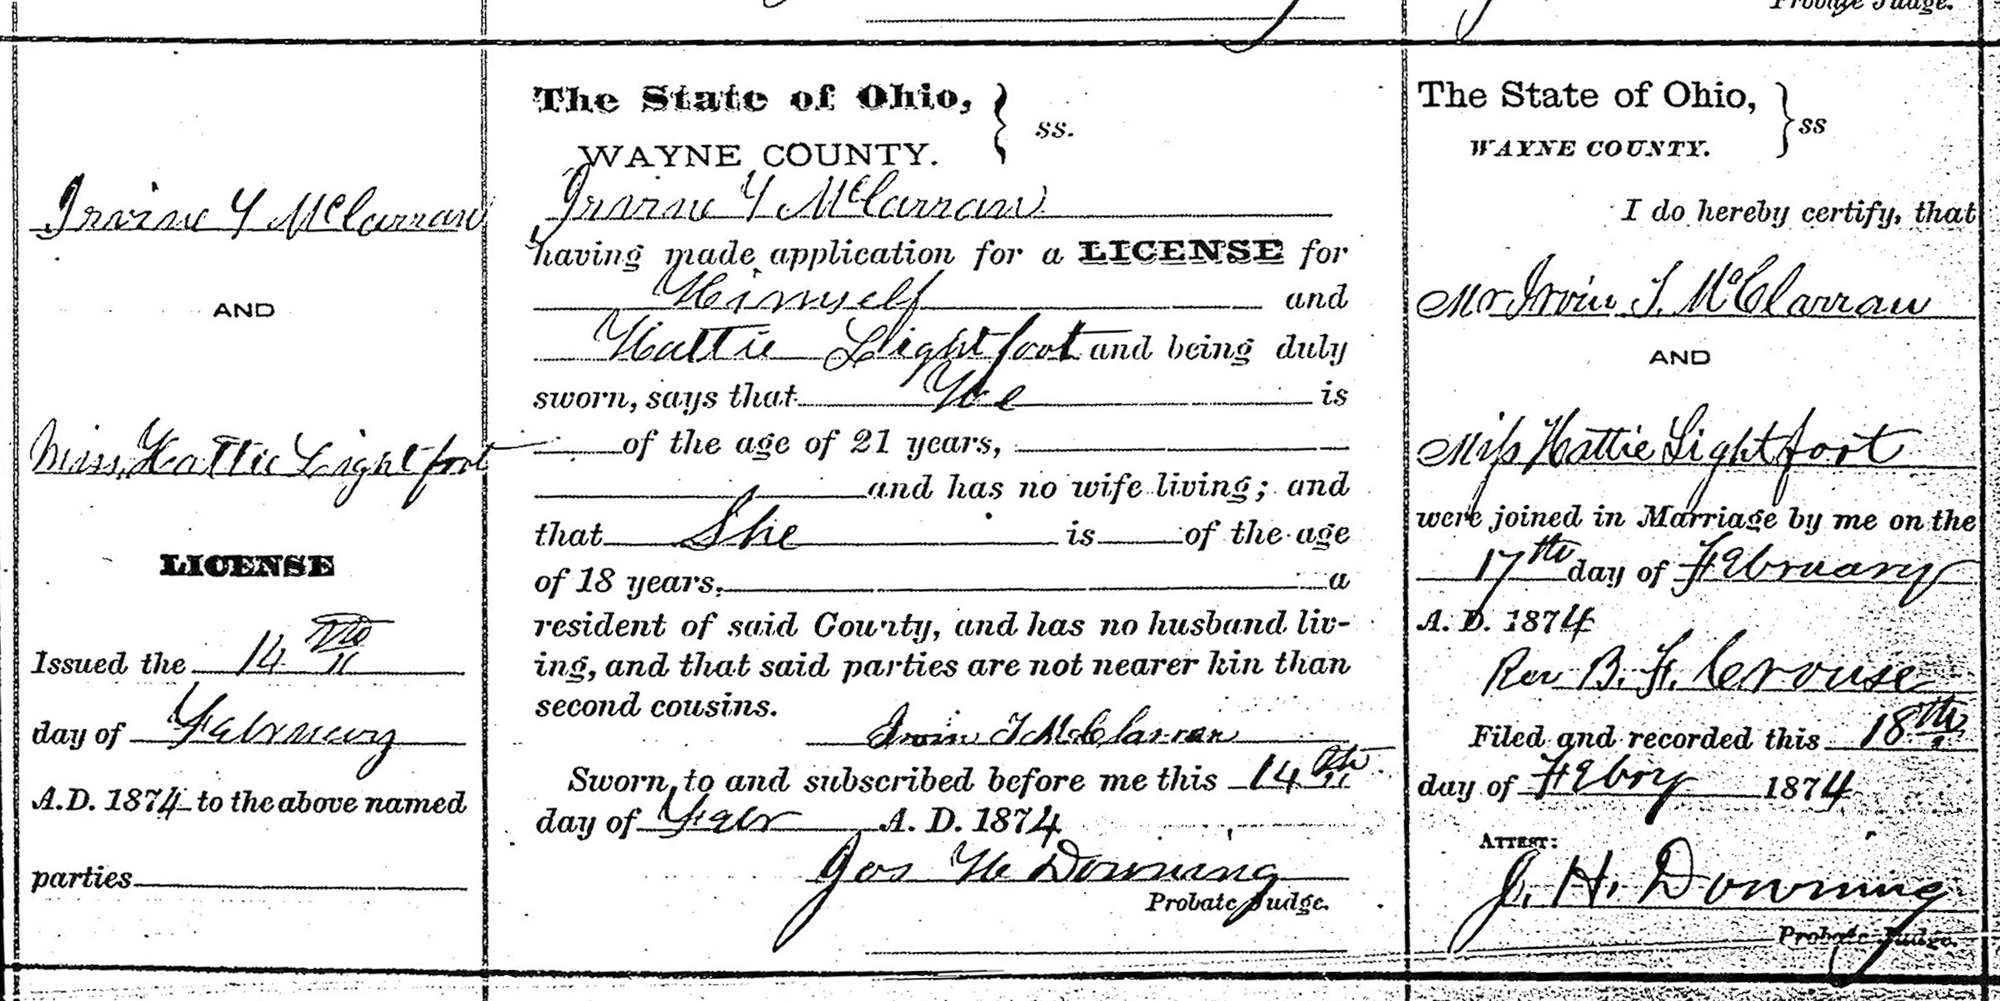 Probate Judge.
Irvine Y McClarran
AND
Miss Hattie Lightfoot
LICENSE
Issued the 14th
day of February
A.D. 1874 to the above named
parties
The State of Ohio, } ss.
WAYNE COUNTY.
Irvine Y McClarran
having made application for a LICENSE for
Himself and
Hattie Lightfoot and being duly
sworn, says that He is
of the age of 21 years,
and has no wife living; and
that She is of the age
of 18 years, a
resident of said County, and has no husband liv-
ing, and that said parties are not nearer kin than
second cousins.
Irvin Y McClarran
Sworn to and subscribed before me this 14th
day of Febr A. D. 1874
Jos H Downing
Probate Judge.
The State of Ohio, } ss
WAYNE COUNTY.
I do hereby certify, that
Mr Irvin Y. McClarran
AND
Miss Hattie Lightfoot
were joined in Marriage by me on the
17th day of February
A. D. 1874
Rev B. F. Crouse
Filed and recorded this 18th
day of Febry 1874
ATTEST:
J. H. Downing
Probate Judge.